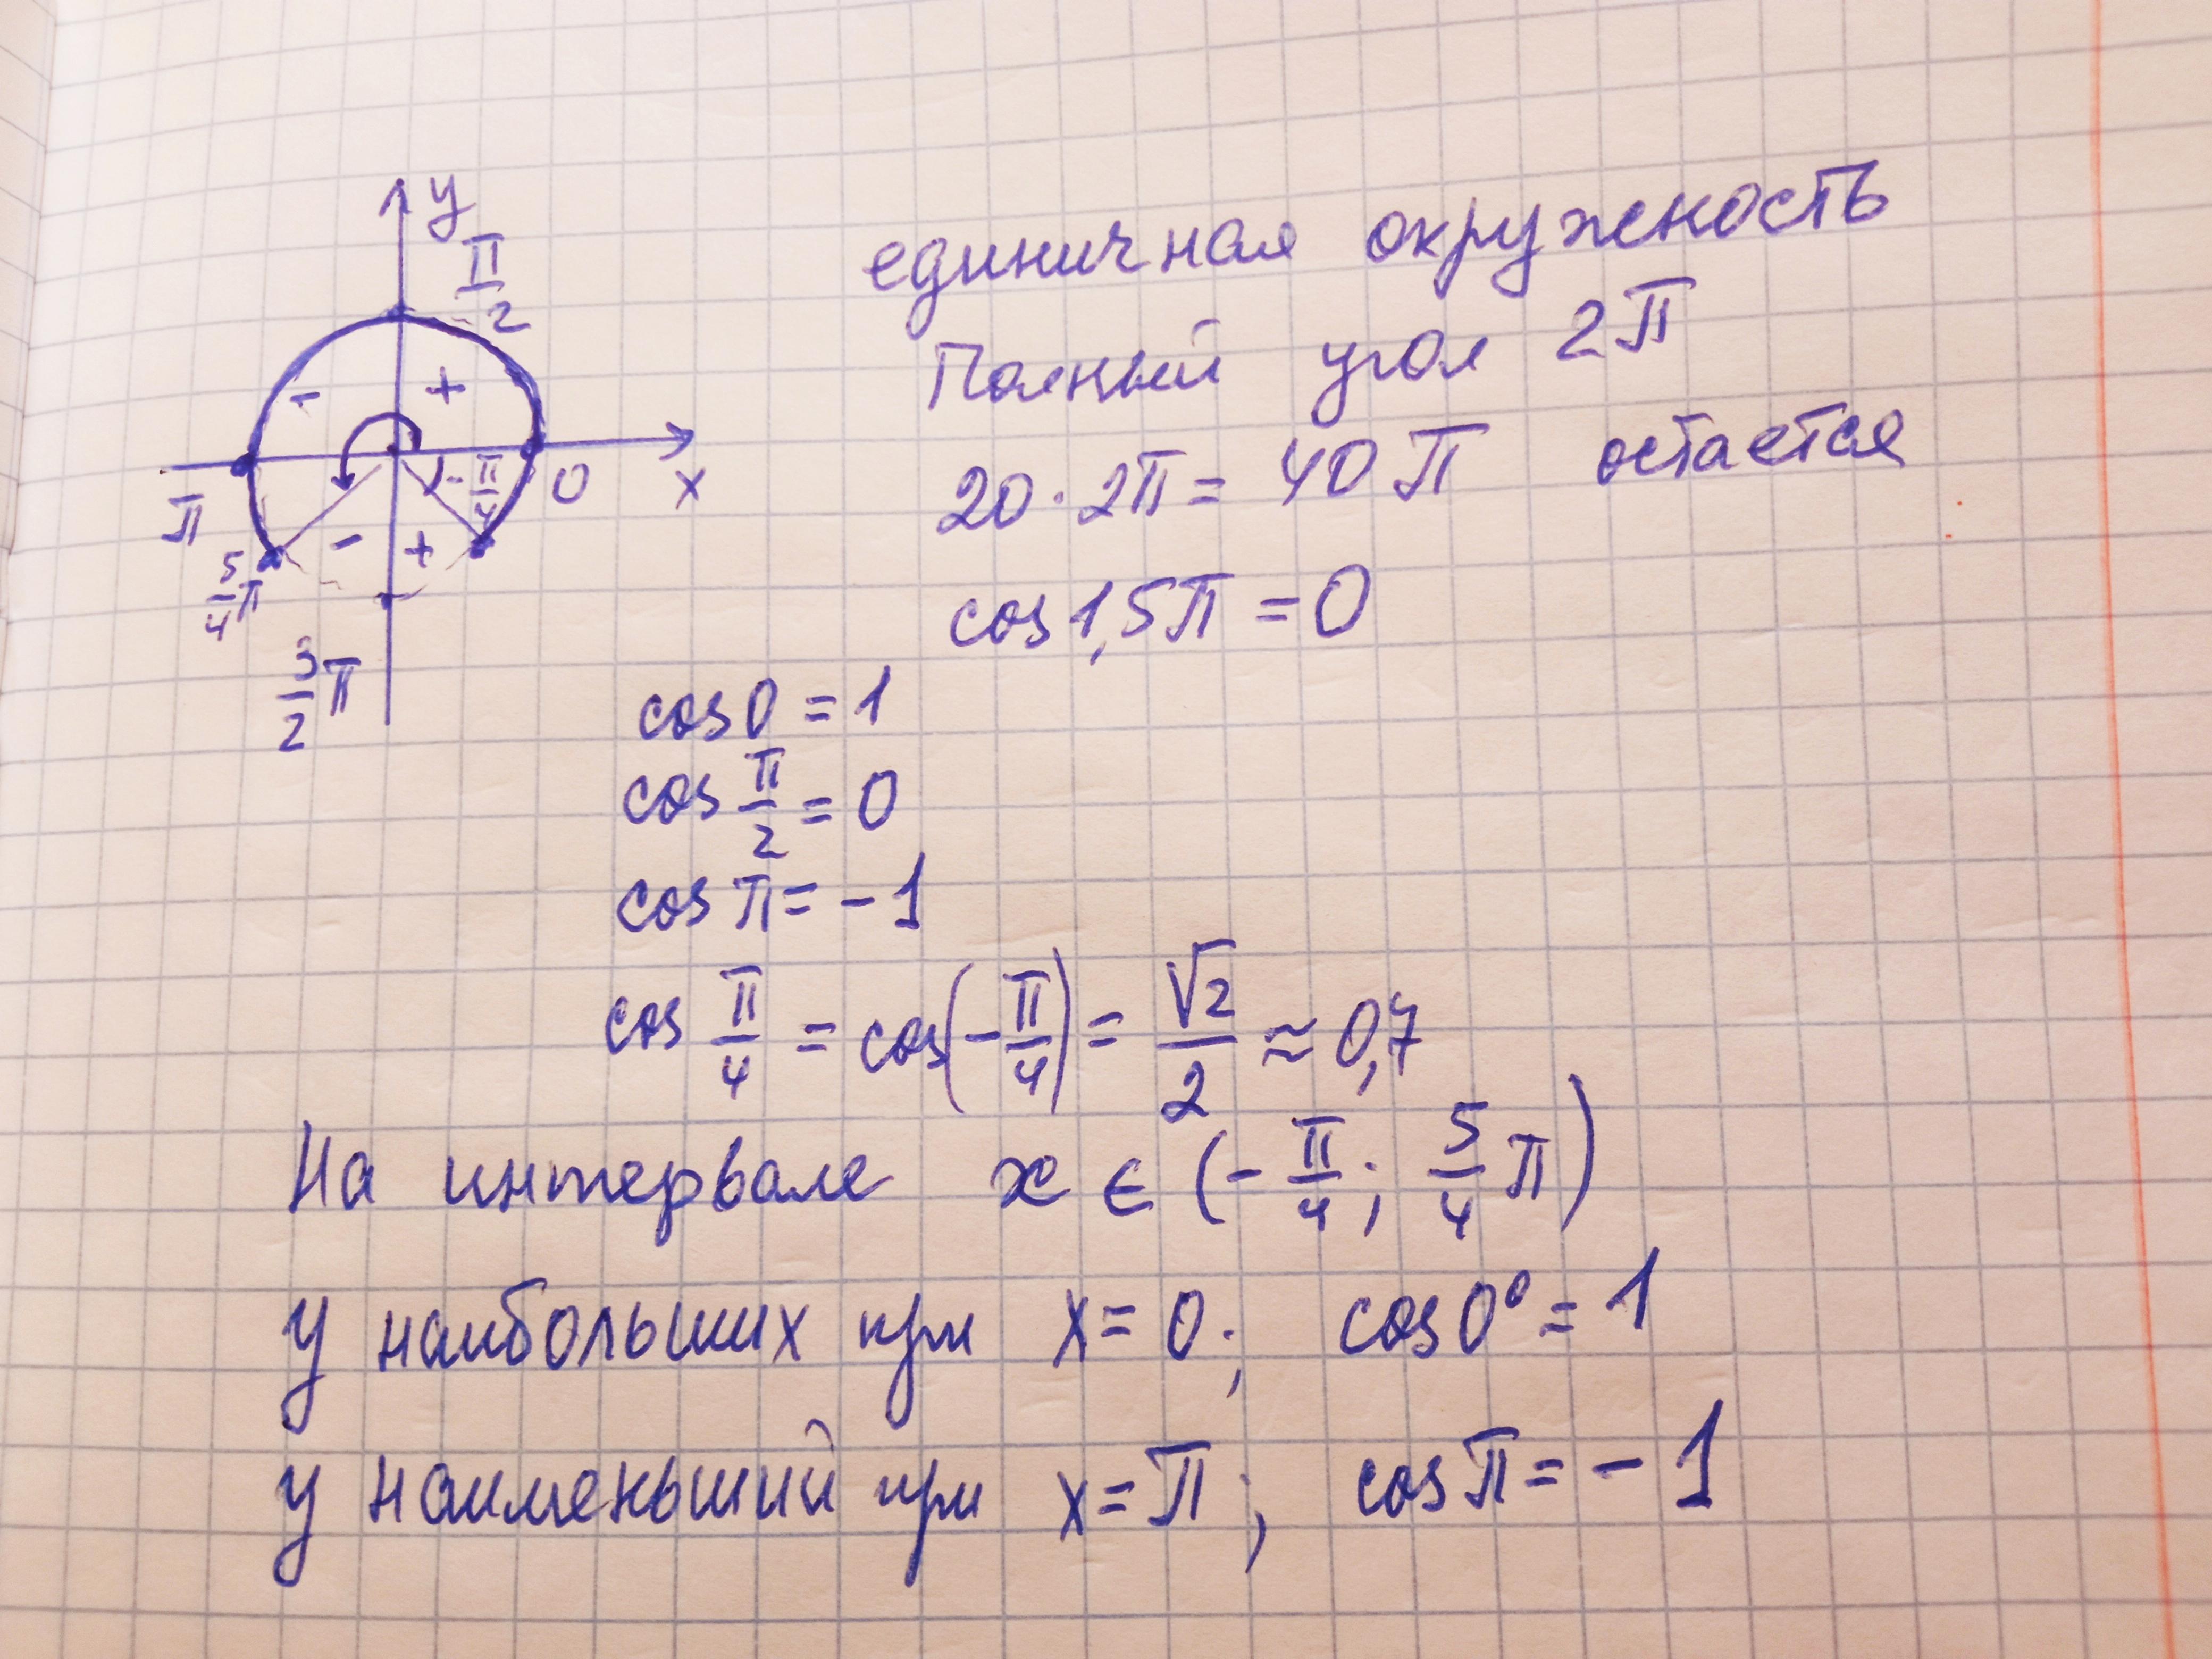 y
π/2
- +
π -π/4 0 x
5/4 π - +
3/2 π
единичная окружность
Полный угол 2π
20 · 2π = 40π остается
cos 1,5π = 0
cos 0 = 1
cos π/2 = 0
cos π = -1
cos π/4 = cos(-π/4) = √2/2 ≈ 0,7
На интервале x ∈ (-π/4; 5/4 π)
y наибольших при x = 0; cos 0° = 1
y наименьший при x = π; cos π = -1